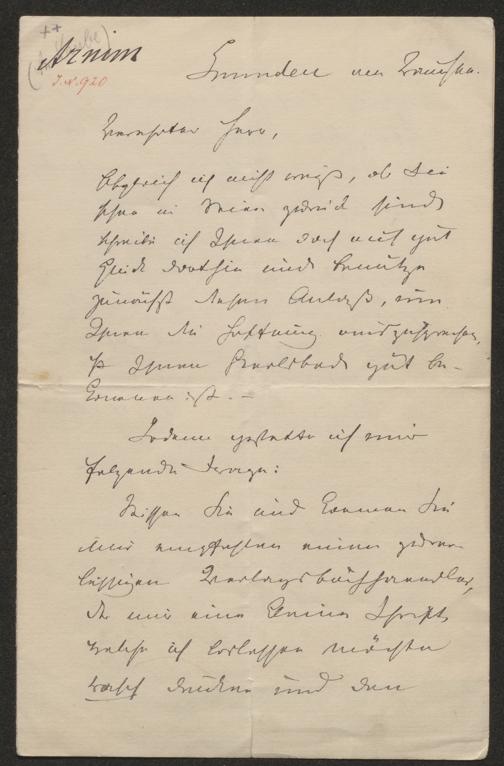 Arnim
I.N. 920
Gmunden am Traunsee.
Verehrter Herr,
Obgleich ich nicht weiß, ob Sie
schon in Wien zurück sind,
schreibe ich Ihnen doch auf gut
Glück dorthin und benütze
zunächst diesen Anlaß, um
Ihnen die Hoffnung auszusprechen,
Ihnen Karlsbad gut be-
kommen ist. –
Sodann gestatte ich mir
folgende Frage:
Wissen Sie und können Sie
mir empfehlen einen zuver-
lässigen Verlagsbuchhändler,
der mir eine kleine Schrift,
welche ich loslassen möchte
rasch drucken und den